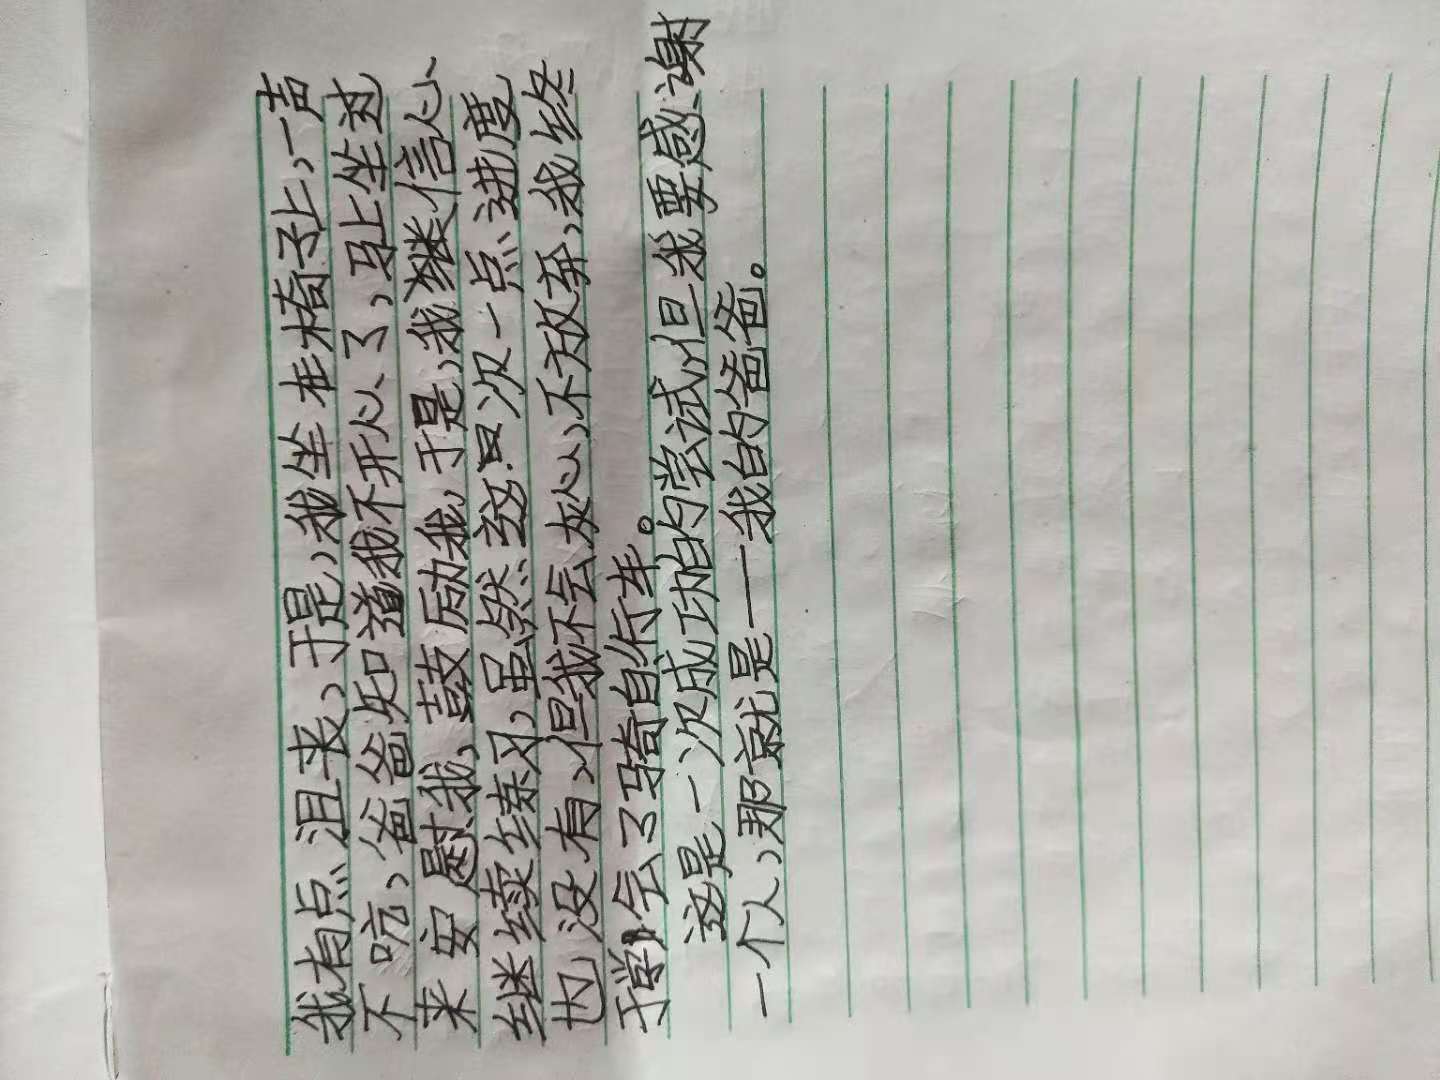 我有点沮丧，于是，我坐在椅子上，一声
不吭，爸爸知道我不开心了，马上坐过
来安慰我，鼓励我。于是，我搂信心，
继续练习，虽然这只次一点进度
也没有，但我不会灰心，不放弃，我终
于学会了骑自行车。
这是一次成功的尝试，但我要感谢
一个人，那就是——我的爸爸。